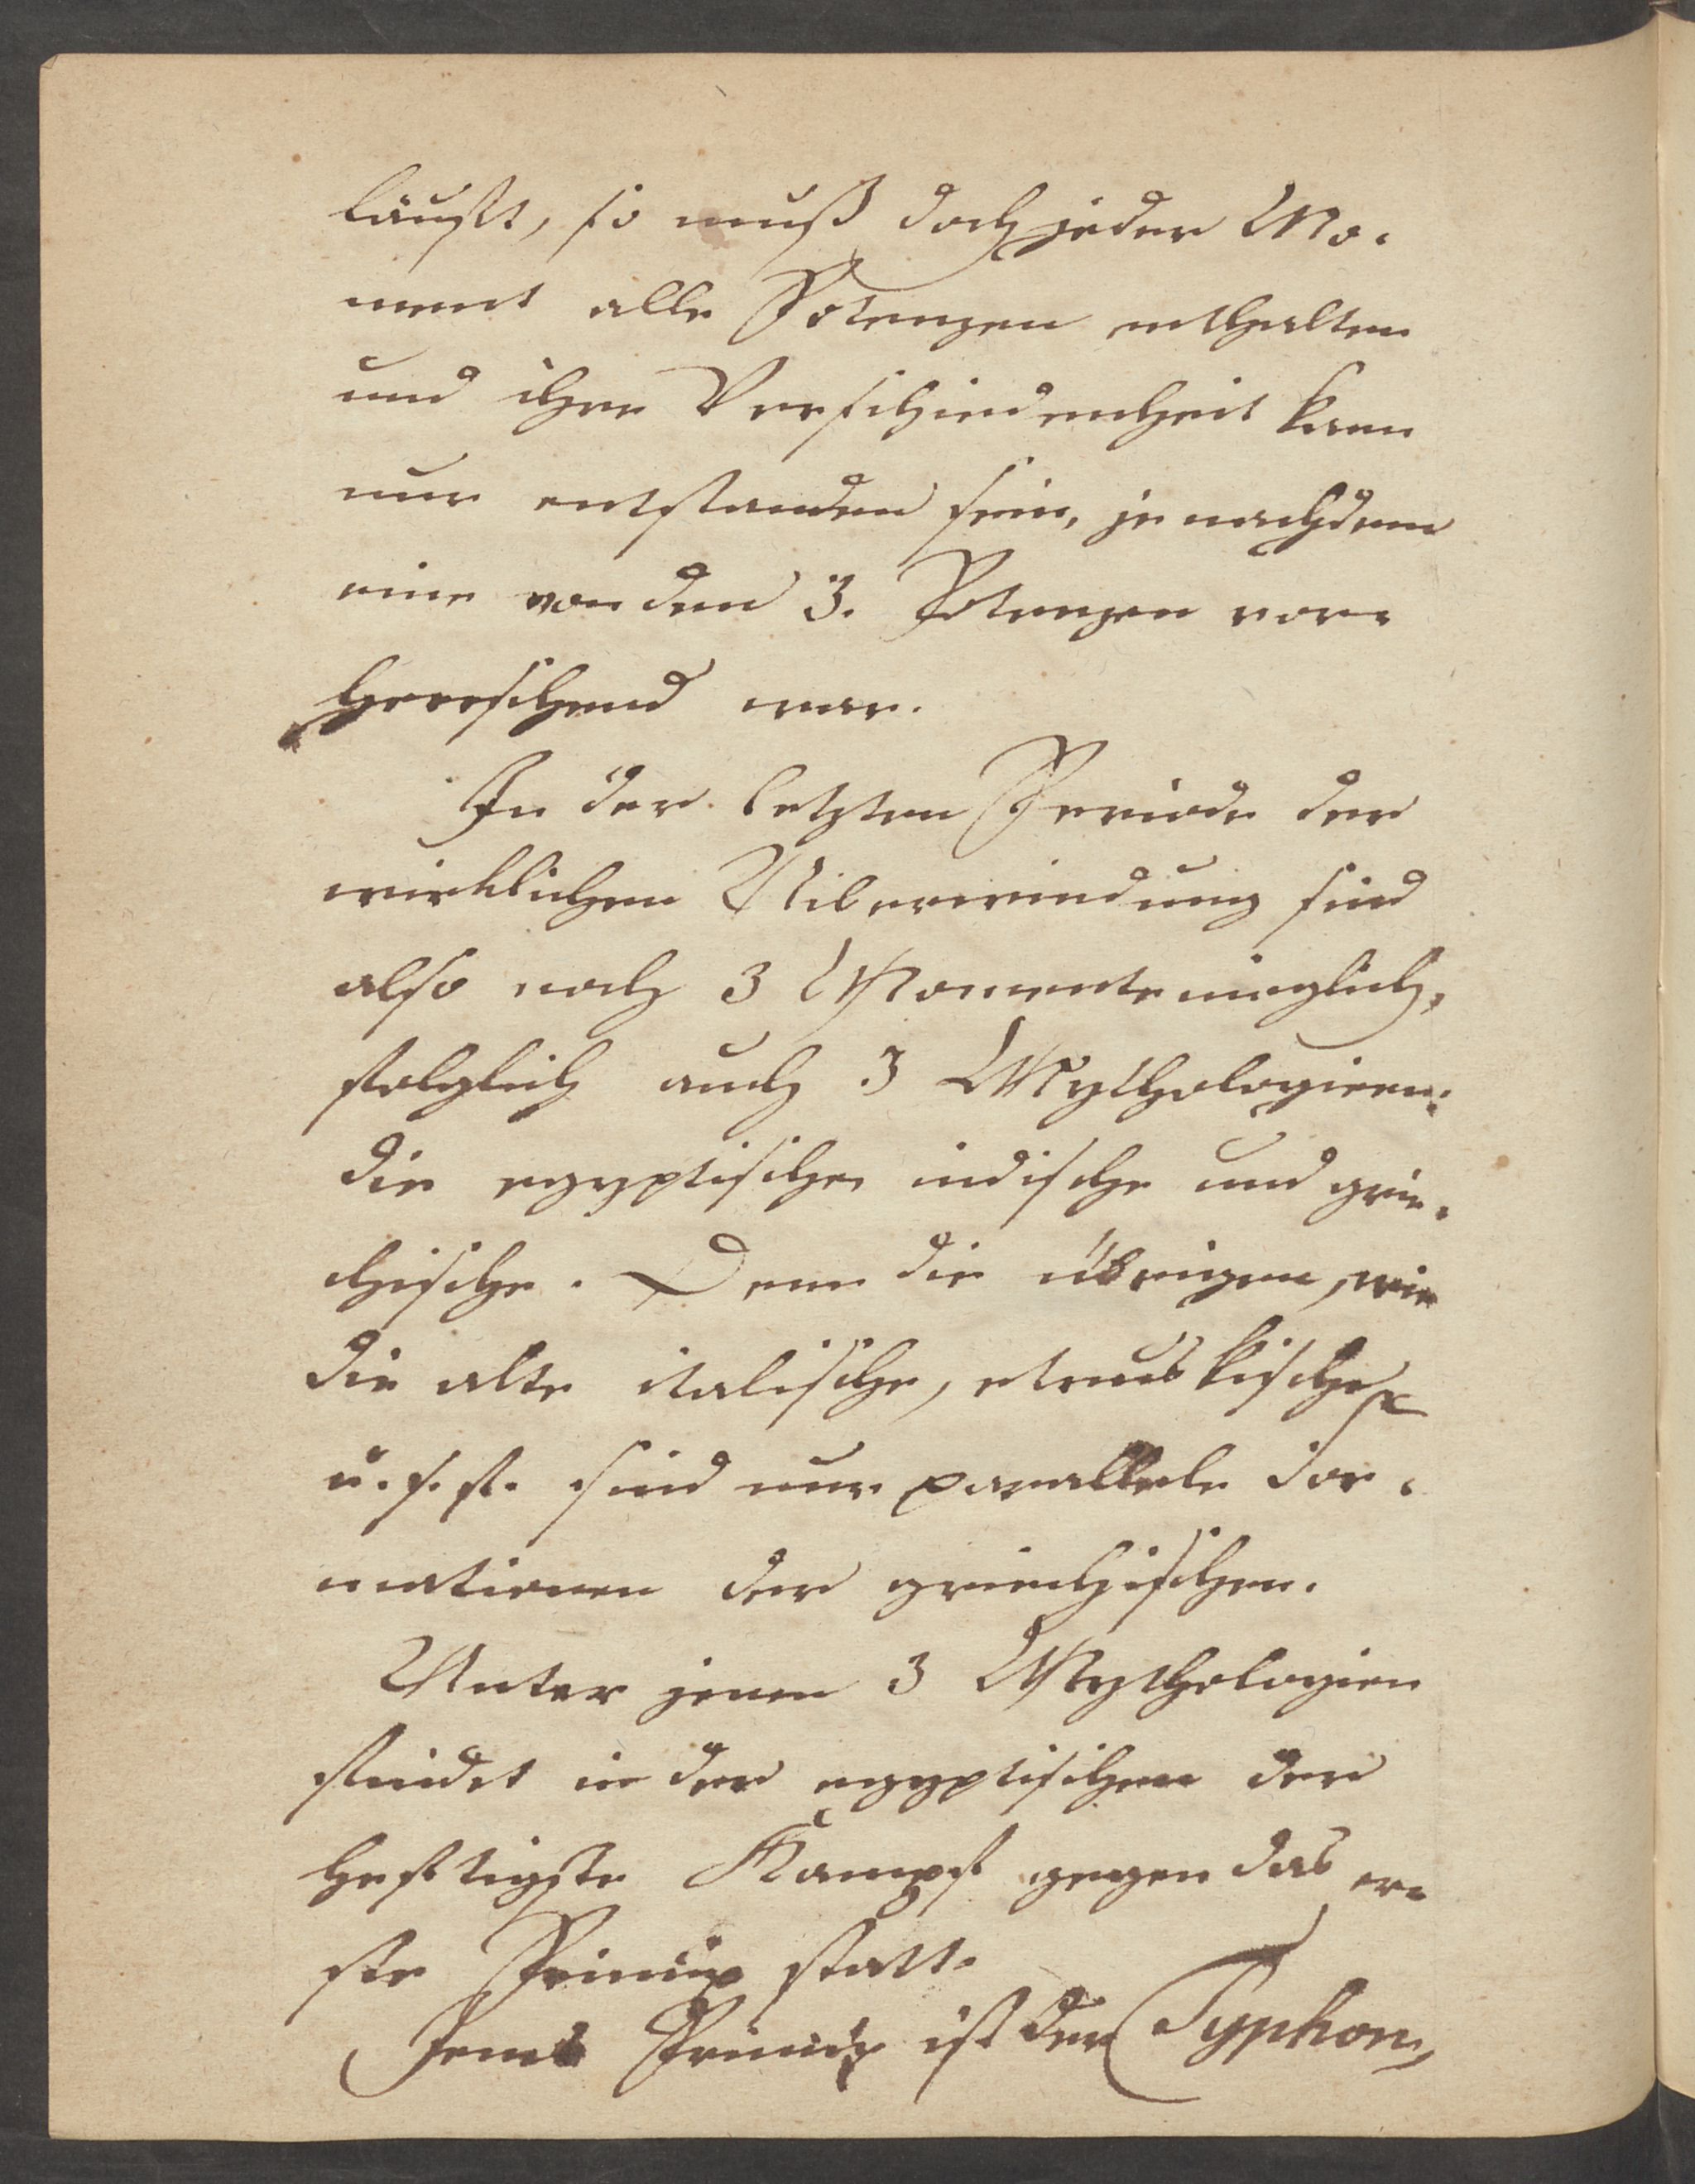 läuft, so muß doch jeder Mo-
ment alle Potenzen enthalten
und ihre Verschiedenheit kann
nur entstanden sein, je nachdem
eine von den 3. Potenzen vor-
herrschend war.
In der letzten Periode der
wirklichen Uiberwindung sind
also noch 3 Momente möglich,
folglich auch 3 Mythologieen:
die egyptische, indische und grie-
chische. Denn die übrigen, wie
die alte italische, etruskische
u. s. f. sind nur parallele For-
mationen der griechischen.
Unter jenen 3 Mythologien
findet in der egyptischen der
heftigste Kampf gegen das er-
ste Princip statt.
Jenes Princip ist der Typhon,